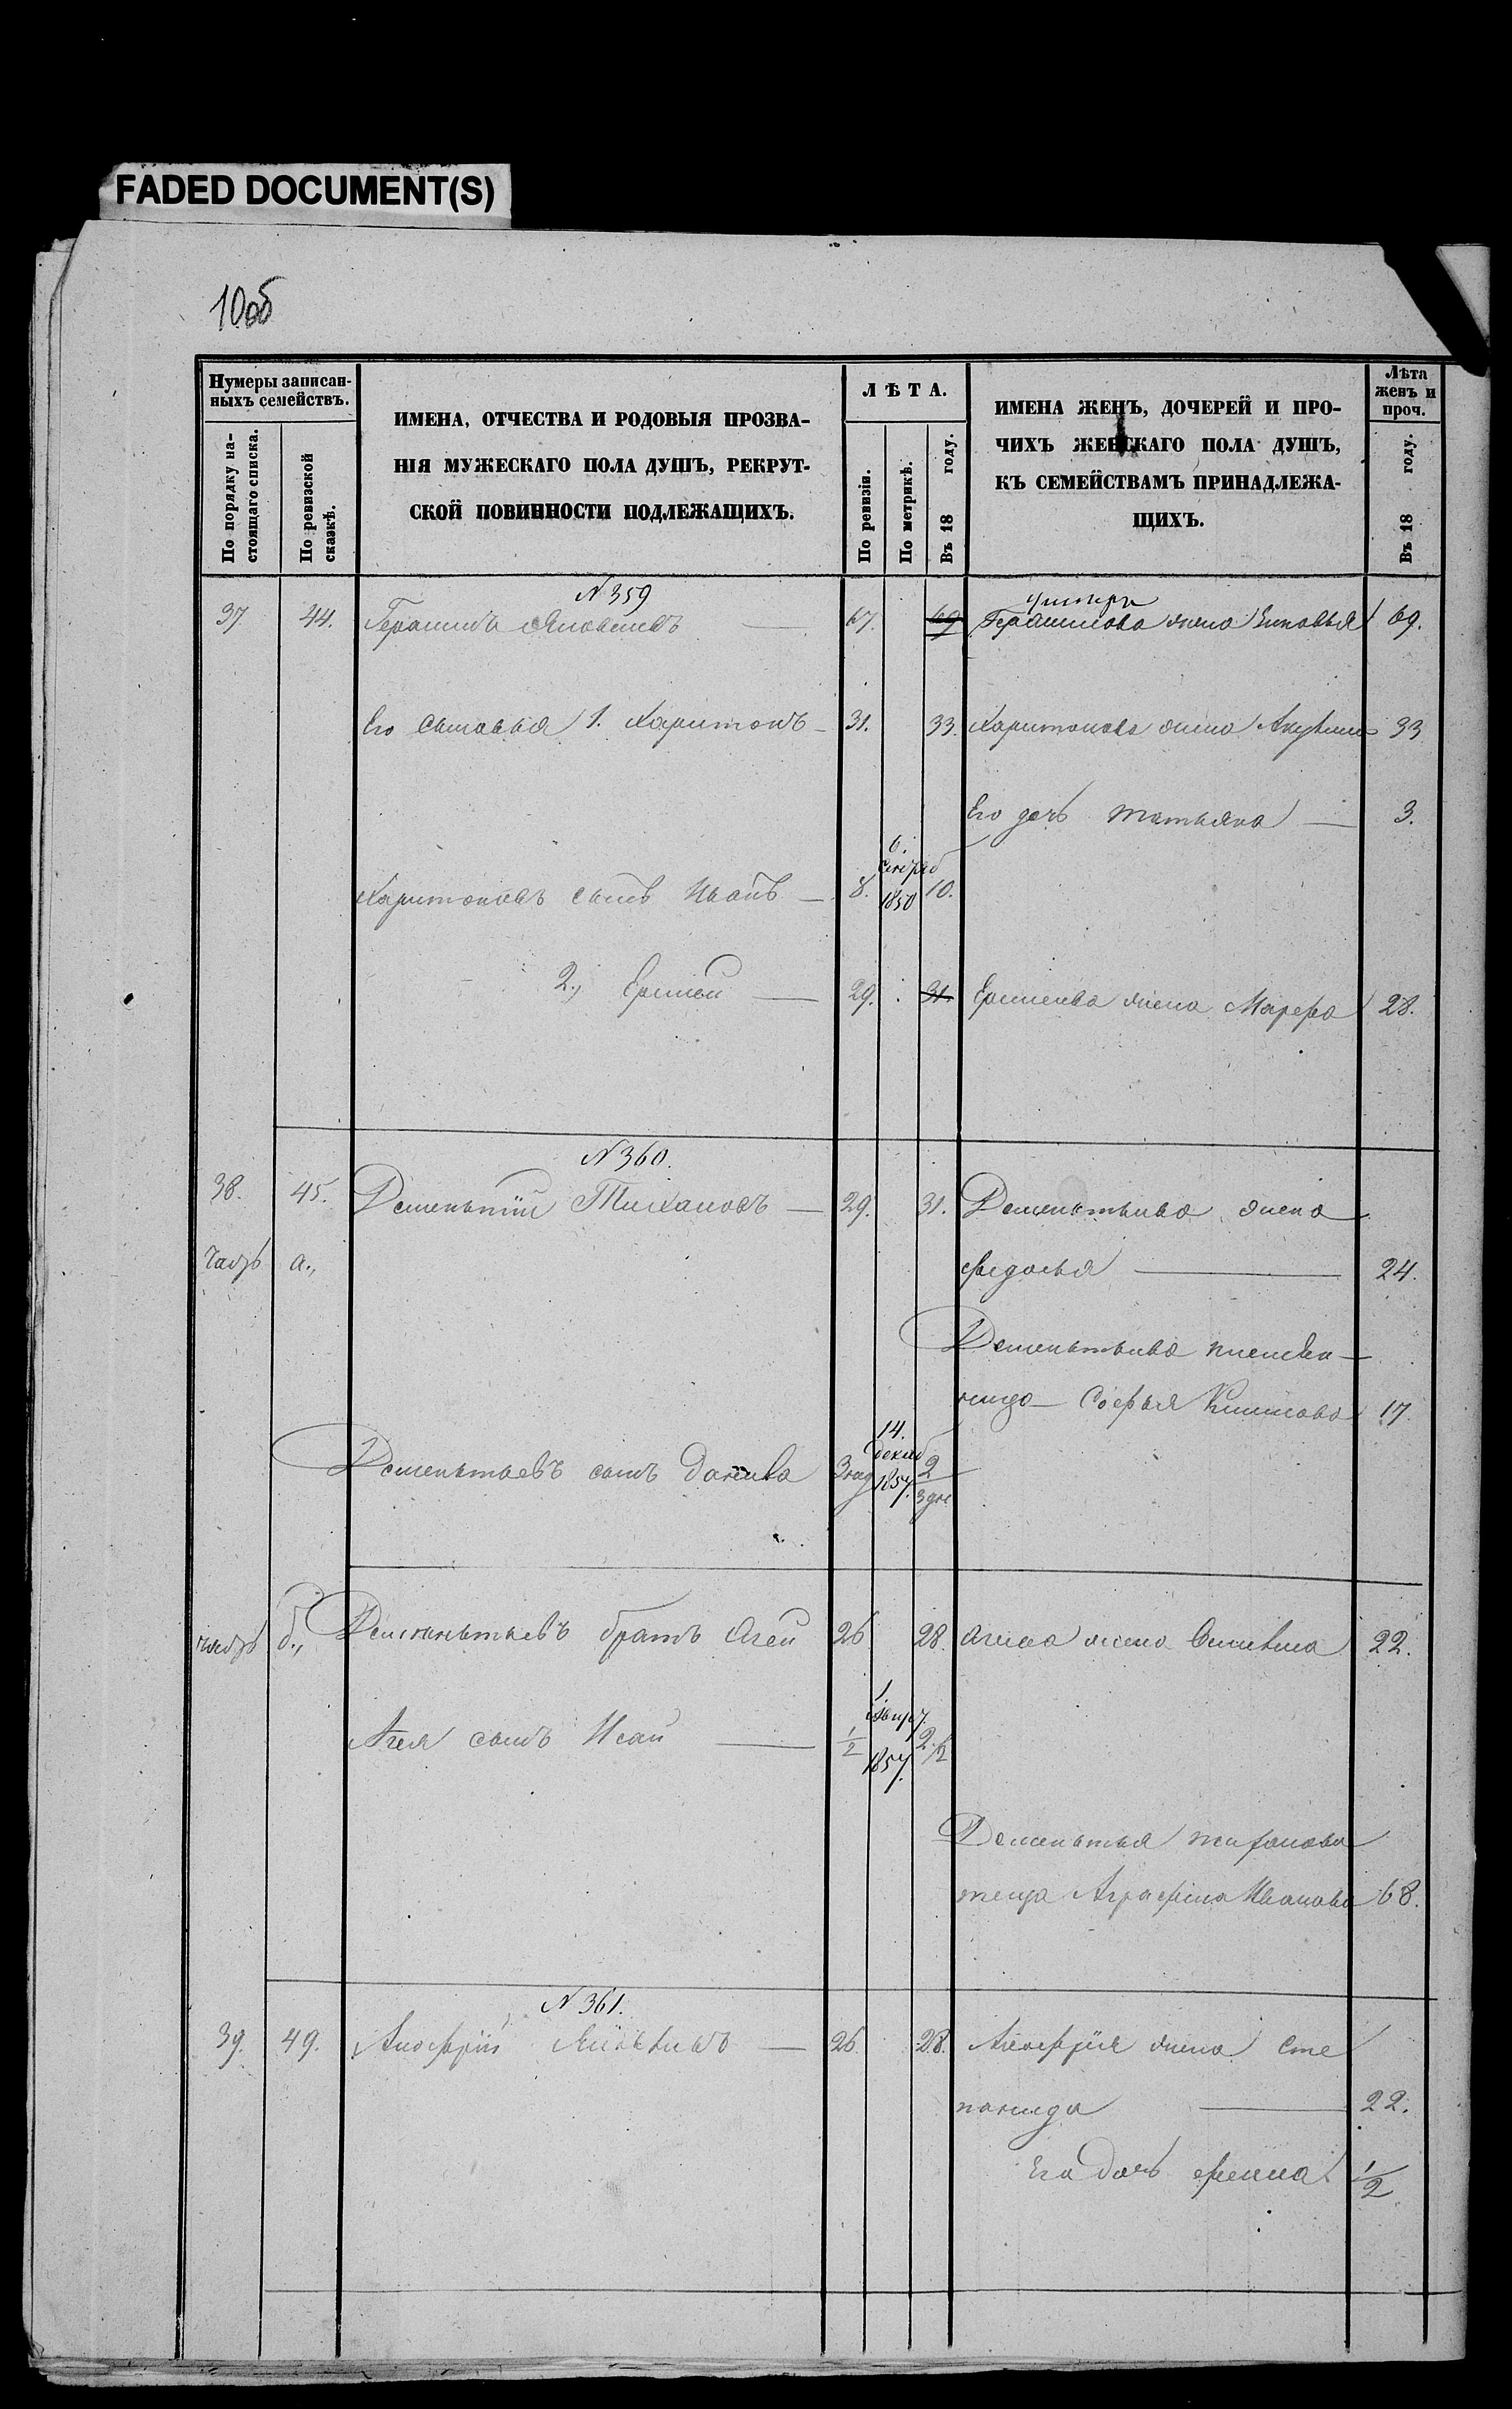 FADED DOCUMENT(S)
10об
Нумеры записан-
ныхъ семействъ.
По порядку на-
стоящаго списка.
По ревизской
сказкѣ.
ИМЕНА, ОТЧЕСТВА И РОДОВЫЯ ПРОЗВА-
НІЯ МУЖЕСКАГО ПОЛА ДУШЪ, РЕКРУТ-
СКОЙ ПОВИННОСТИ ПОДЛЕЖАЩИХЪ.
ЛѢТА.
По ревизіи.
По метрикѣ.
Въ 18 году.
ИМЕНА ЖЕНЪ, ДОЧЕРЕЙ И ПРО-
ЧИХЪ ЖЕНСКАГО ПОЛА ДУШЪ,
КЪ СЕМЕЙСТВАМЪ ПРИНАДЛЕЖА-
ЩИХЪ.
Лѣта
женъ и
проч.
Въ 18 году.
N 359
37 44. Герасимъ Яковлевъ 67. 69 Герасимова жена Зиновья 69.
Его сыновья 1. Харитонъ 31. 33. Харитонова жена Акулина 33
Его дочь Татьяна 3.
6.
Харитоновъ сынъ Иванъ 8. 1850 10.
2., Ермей 29. 31. Ермеева жена Марефа 28.
N 360.
38. 45. Дементий Тихановъ 29. 31. Дементьева жена
а., Федосья 24.
Дементьева племян-
ница Софья Климова 17.
14.
декаб
Дементьевъ сынъ Данила 3 нед 1857. 2
3 дне
б., Дементьевъ братъ Агей 26 28. Агеева жена 22.
1
Агея сынъ Исай 1/2 1857. 2 1/2
Дементья Тиханова
теща Аграфена Иванова 68.
N 361.
39. 49. Яковлевъ 26. 28. жена Сте
панида 22.
Его дочь 1/2